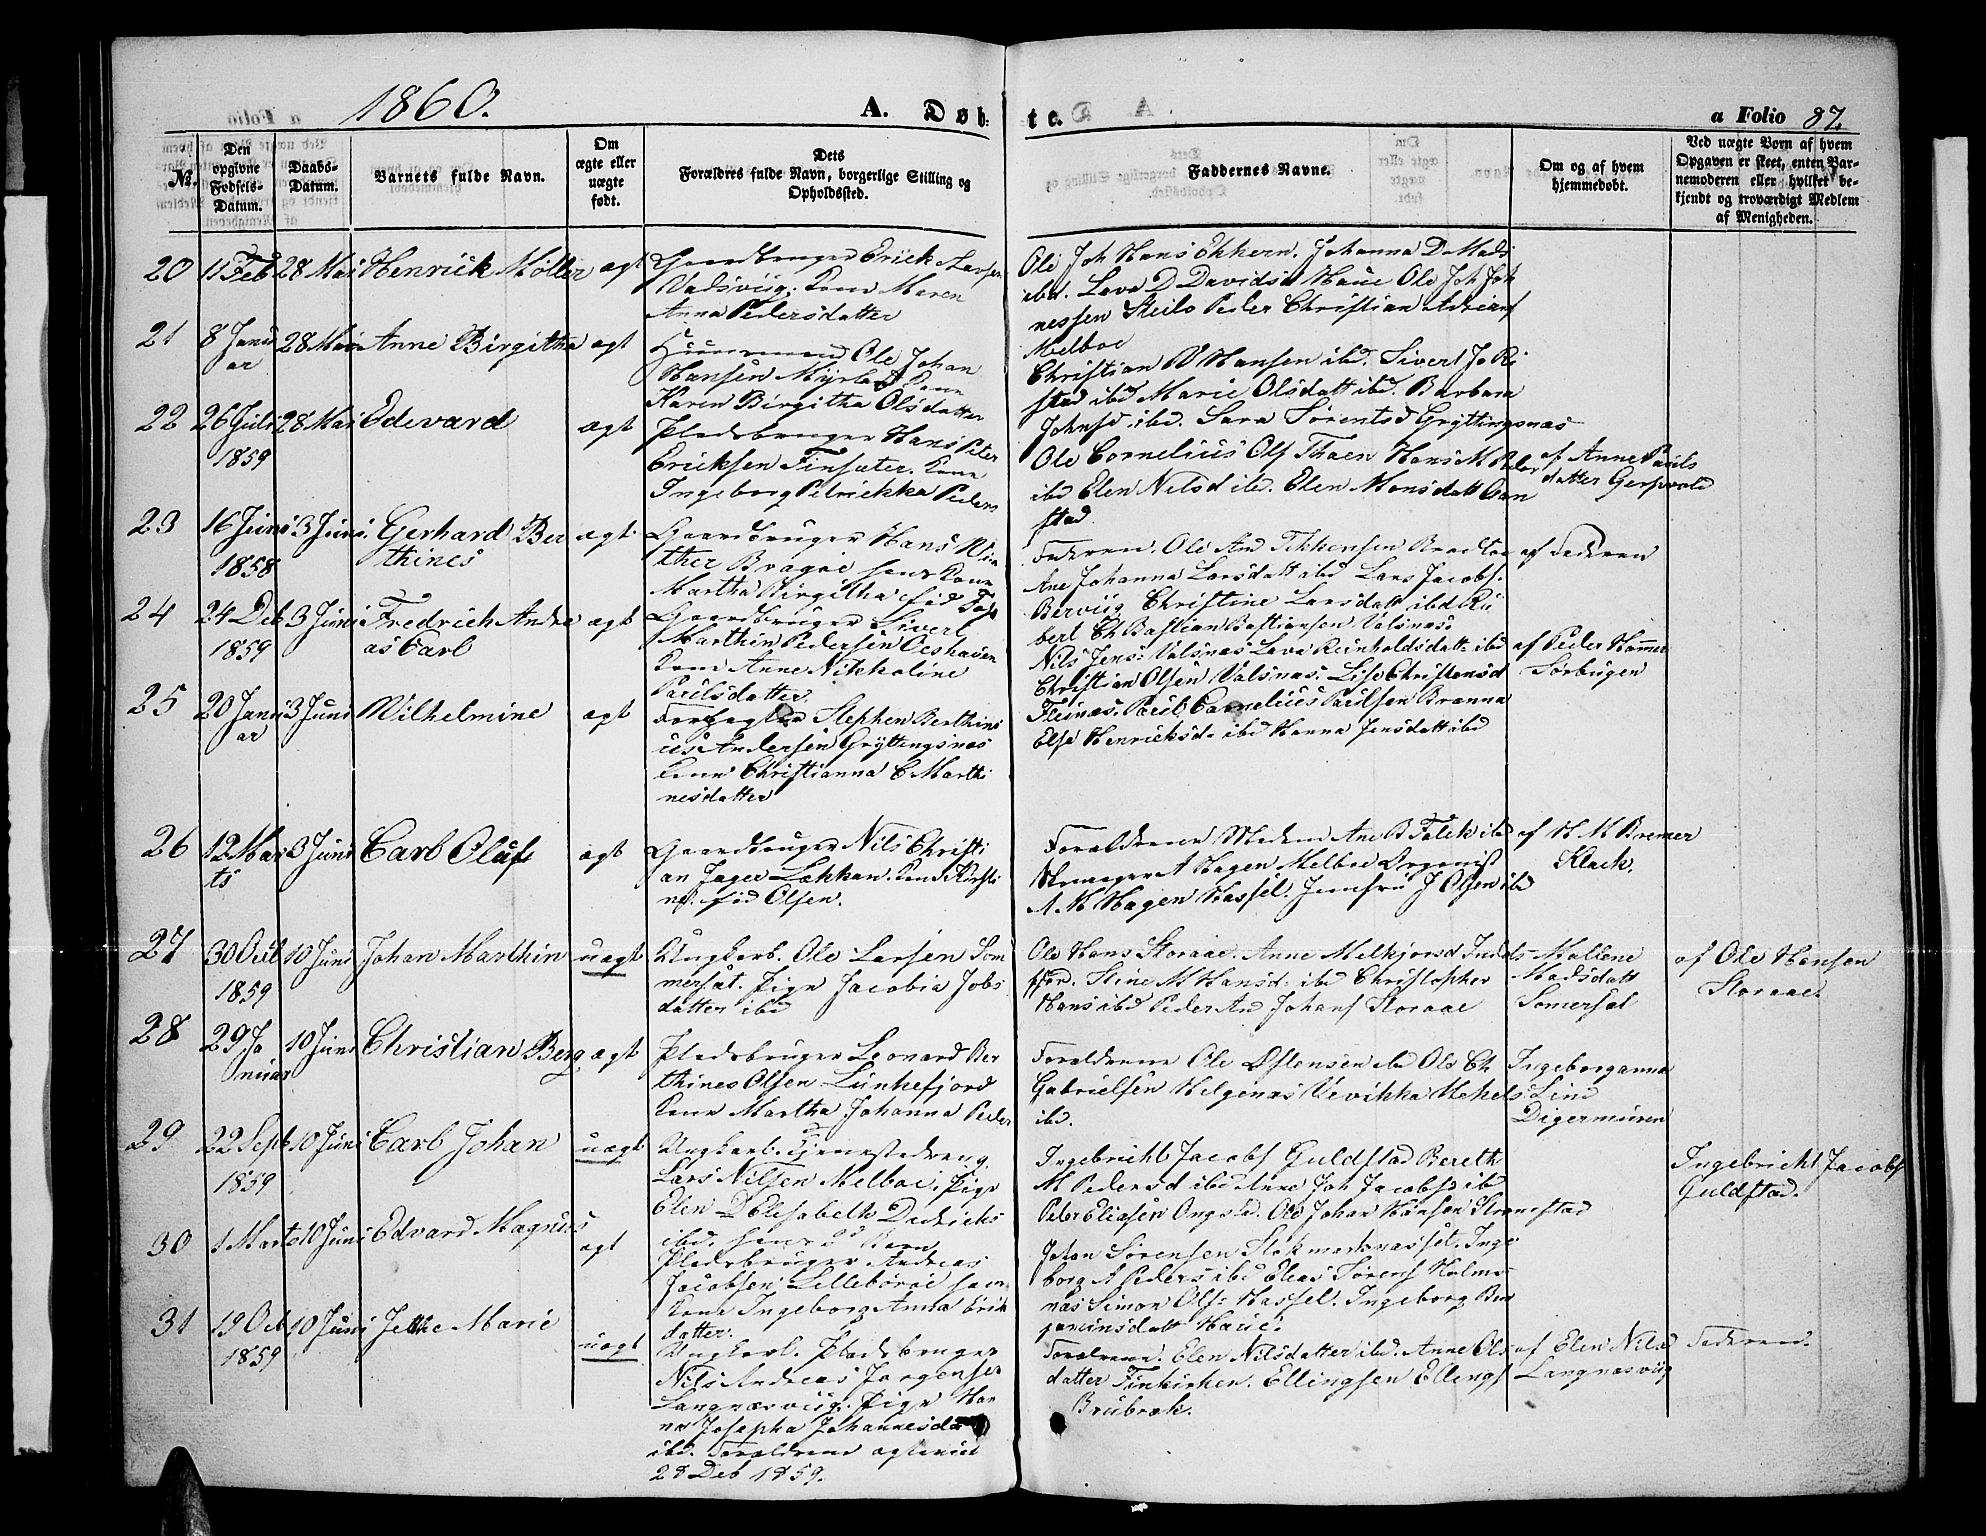 1860.
A. Døb-
te.
a Folio 87.
No.
Den opgivne Fødsels-Datum.
Daabs-Datum.
Barnets fulde Navn.
Om ægte eller uægte født.
Dets Forældres fulde Navn, borgerlige Stilling og Opholdssted.
Faddernes Navne.
Om og af hvem hjemmedøbt.
Ved uægte Børn af hvem Opgaven er skeet, enten Barnemoderen eller hvilket bekjendt og troværdigt Medlem af Menigheden.
20 11 Feb 28 Mai Henrick Møller ægt
Gaardbruger Erick Larsen
Vadsviig. Kone Maren
Anna Pedersdatter
Ole Joh Hans Ekkern. Johanna D Mads
ibd. Lava D Davidsd Haue Ole Joh Joh
nessen Steilo Peder Christian Adrians
Melboe
21 8 Janu
ar
28 Mai Anne Birgitha ægt
Huusmand Ole Johan
Hansen Myrland Kone
Karen Birgitha Olsdatter
Christian Hansen ibd. Sivert Jo Ri
stad ibd Marie Olsdatt ibd. Barbara
Johnsd. ibd. Sara Sørentsd Gryttingsnæs
22 26 Juli
1859
28 Mai Edevard ægt
Pladsbruger Hans Peter
Ericksen Finsæter. Kone
Ingeborg Petrickka Peders
Ole Cornelius Ols Thoen Hans M Peder
ibd Elen Nilsd ibd. Elen Monsdatt
stad
af Anne Pauls
datter
23 16 Juni
1858
3 Juni Gerhard Ber
thines
ægt
Gaardbruger Hans
ther Bragæ hans Kone
Martha Birgitha fød
Faderen. Ole And
Ane Johanna Larsdatt ibd Lars Jacobs.
Berviig Christine Larsdatt ibd
bert Ch Bastian Bastiansen Valsnæs
af Faderen
24 24 Deb
1859
3 Juni Fredrich Andre
as Carl
ægt
Gaardbruger Sivert
Marthin Pedersen Oeshavn
Kone Anne Nikkoline
Paulsdatter
Nils Jens: Valsnæs Lava Reinholdsdatt ibd
Christian Olsen Valsnæs. Lise Christensd
af Peder Hammer
Sørbugen
25 20 Janu
ar
3 Juni Wilhelmine ægt
Forpagter Stephen Berthini
us Andersen Gryttingsnæs
Kone Christianna C Marthi
nesdatter
Fleinæs. Paul Cornelius Paulsen Brenna
Else Henricksd. ibd Hanna Jensdatt ibd
26 12 Mar
ts
3 Juni Carl Oluf ægt
Gaardbruger Nils Christi
an Jager Løkkan. Kone Kirsti
ne. fød Olsen.
Forældrene Madam Ane B Falck ibd
A Hagen Melboe Organist
A M Hagen Hassel. Jomfru J Olsen ibd
af H. M Bremer
Klack.
27 30 Oct
1859
10 Juni Johan Marthin uægt
Ungkarl. Ole Larsen Som
mersæt. Pige Jacobia Jobs
datter ibd
Ole Hans Storaae. Anne Melkjorsd Indds
fjor. Stine M Hansd. ibd Christopher
Hans ibd Peder And Johans Storaae
Mallene
Madsdatt
Somersæt
af Ole Hansen
Storaae.
28 29 Ja
nuar
10 Juni Christian Berg ægt
Pladsbruger Leonard Ber
thines Olsen Lunkefjord
Kone Martha Johanna Peder
Forældrene Ole Østensen ibd Ole Ch
Gabrielsen Helgenæs
ibd.
Ingeborganna
Lind
Digermuren
29 22 Sept
1859
10 Juni Carl Johan uægt
Ungkarl. Tjenestedreng
Lars Nilsen Melboe. Pige
Elen D Elesabeth Didrichs
ibd. hans 2d Barn
Ingebricht Jacobs Guldstad Bereth
M Pedersd ibd Anne Joh Jacobsd ibd
Peder Eliasen Ongstad. Ole Johan Hansen Stranstad
Ingebricht Jacobs
Guldstad.
30 1 Marts 10 Juni Edvard Magnus ægt
Pladsbruger Andreas
Jacobsen Lillebøræ
Kone Ingeborg Anna Erik
datter.
Johan Sørensen Stokmarknæsset. Inge
borg A Peders ibd Elias Sørens Holm-
næs Simon Ols: Hassel. Ingeborg Ben
jaminsdatt Haue.
31 19 Oct
1859
10 Juni Jette Marie uægt
Ungkarl. Pladsbruger
Nils Andreas Jørgensen
Langnæsviig. Pige Han
na Josepha Johannesda
ibd. Forældrene ægteviet
28 Deb 1859.
Forældrene. Elen Nilsdatter ibd. Anne Ols
datter Finkirken. Ellingsen Ellings
Brubræk.
af Elen Nilsd
Langnæsviig
Faderen.